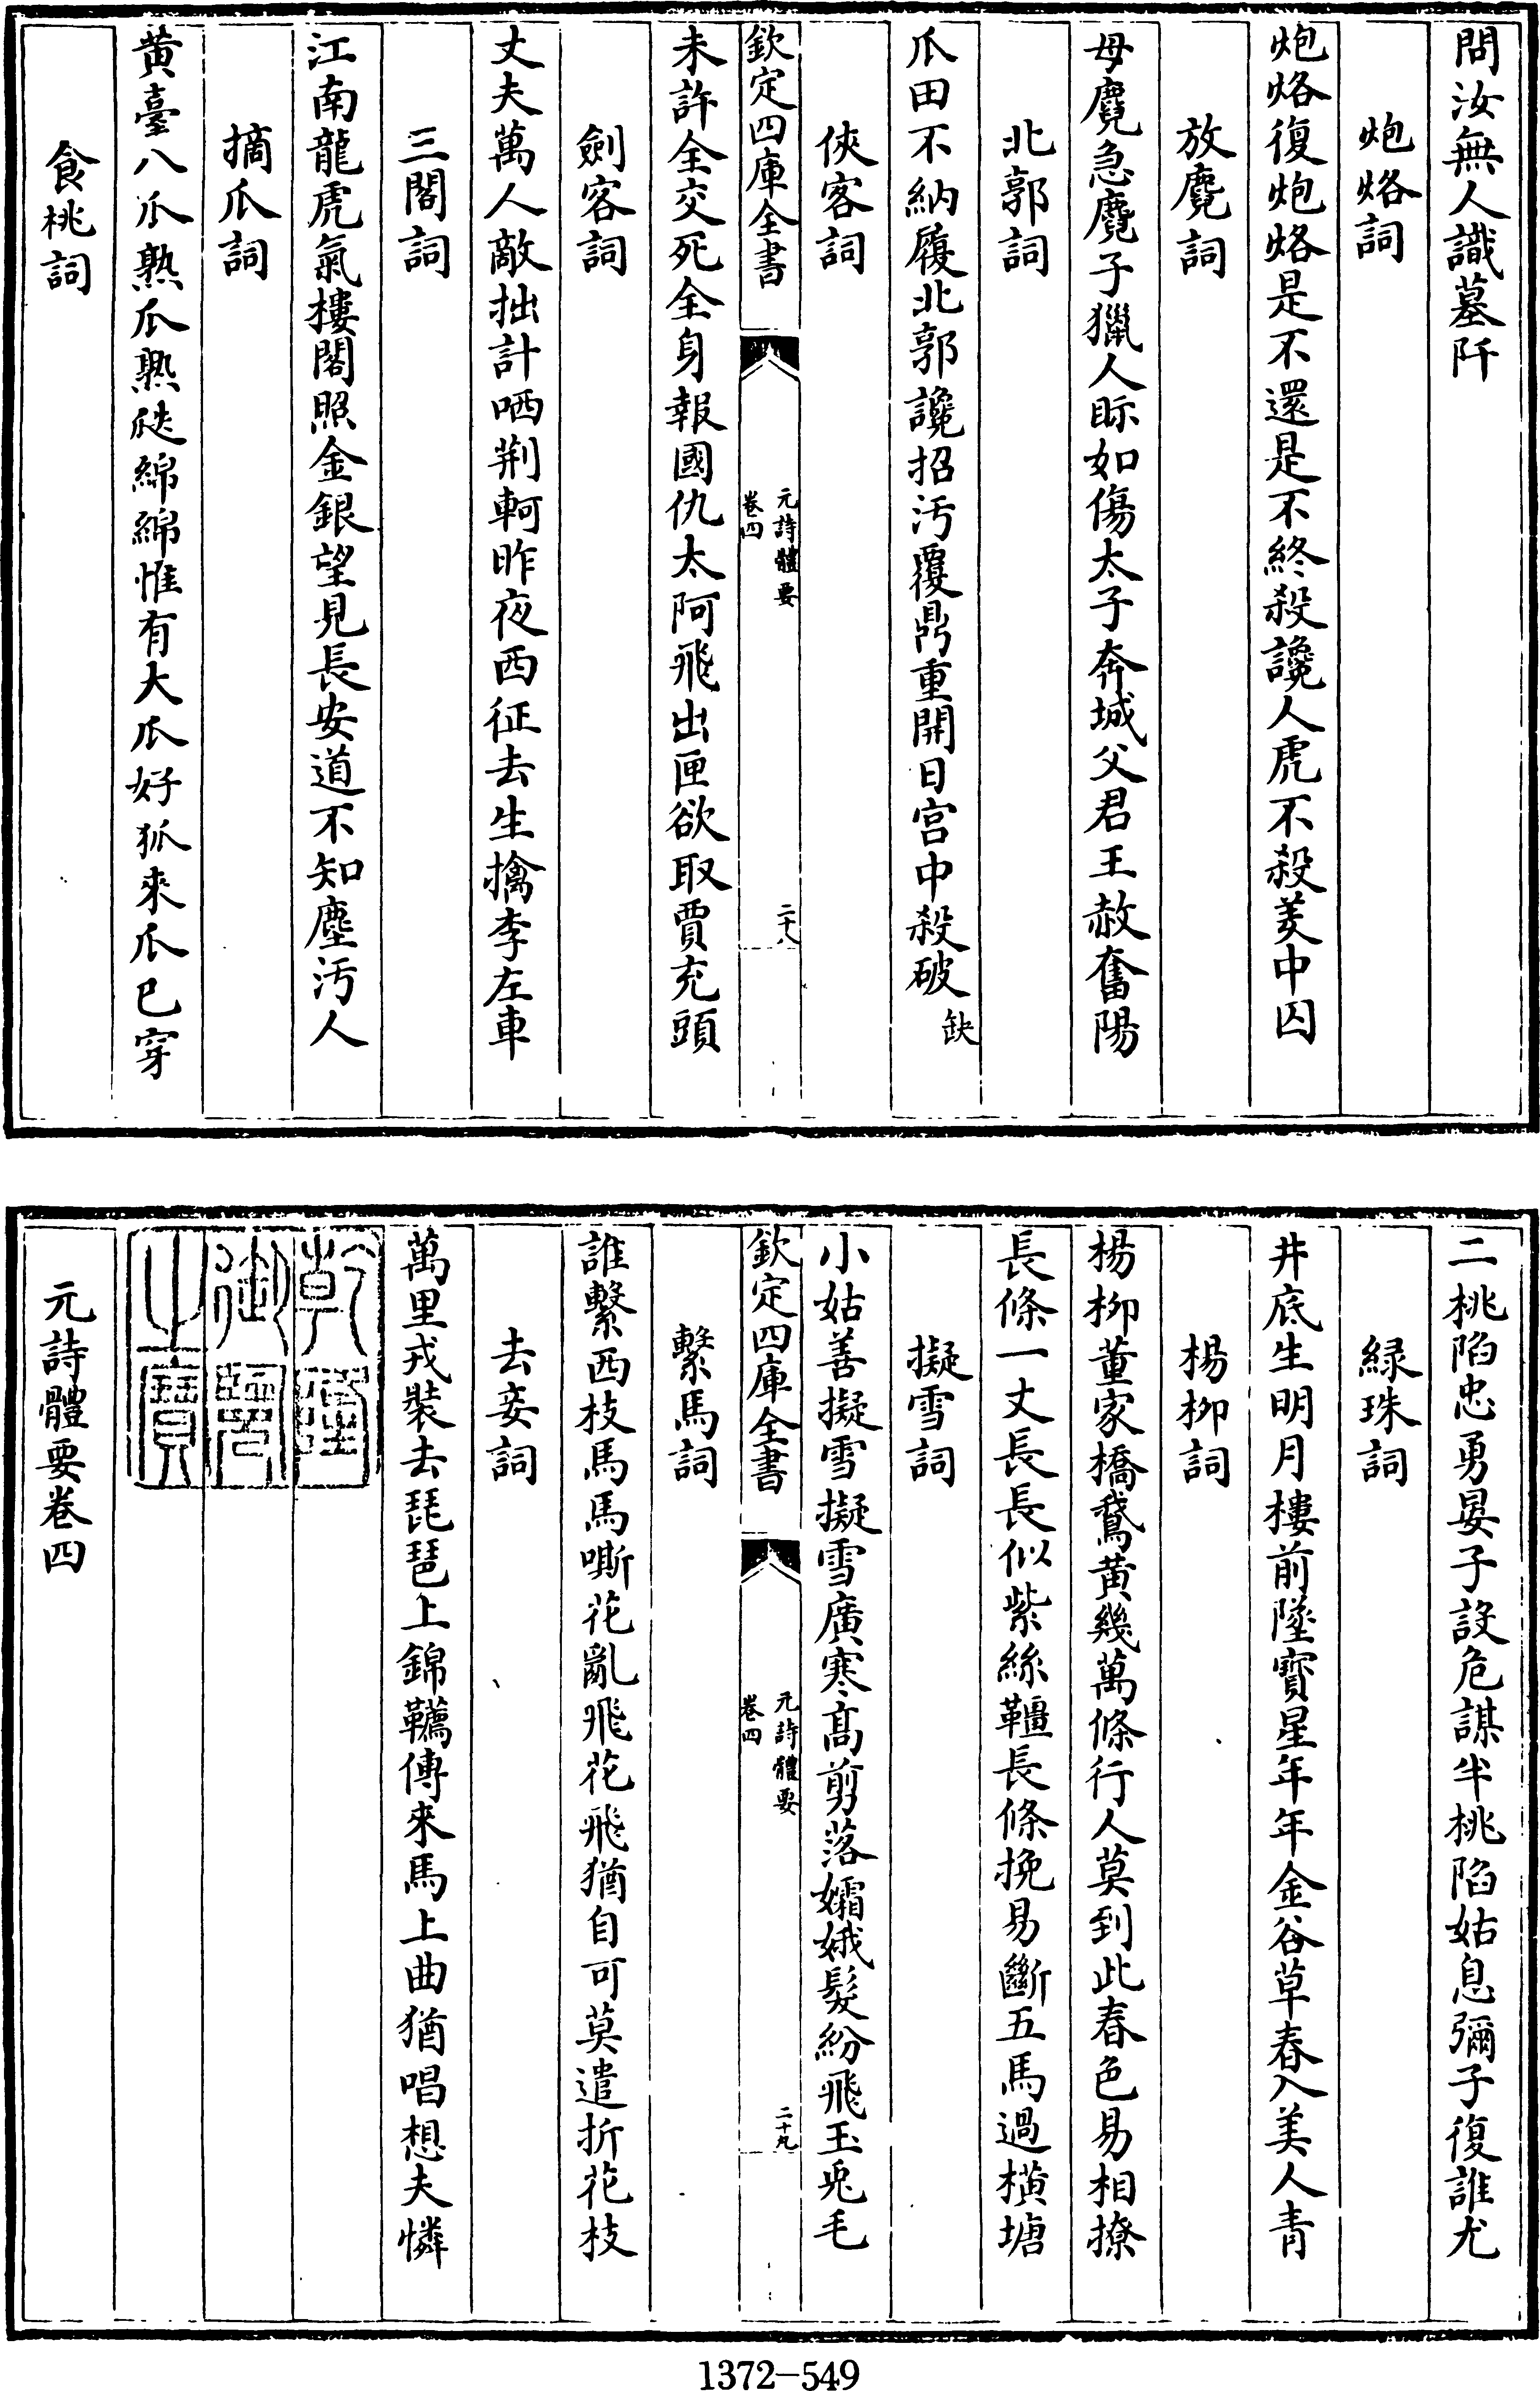 問汝無人識墓阡
炮烙詞
炮烙復炮烙是不還是不終殺讒人虎不殺羑中囚
放麑詞
母麑急麑子獵人眎如傷太子奔城父君王赦奮陽
北郭詞
瓜田不納履北郭讒招汚覆鼎重開日宮中殺破缺
俠客詞
欽定四庫全書
元詩體要
卷四
二十八
未許全交死全身報國仇太阿飛出匣欲取賈充頭
劍客詞
丈夫萬人敵拙計哂荆軻昨夜西征去生擒李左車
三閣詞
江南龍虎氣樓閣照金銀望見長安道不知塵汚人
摘瓜詞
黄臺八瓜熟瓜熟瓞綿綿惟有大瓜好狐來瓜已穿
食桃詞
二桃陷忠勇晏子設危謀半桃陷姑息彌子復誰尤
緑珠詞
井底生明月樓前墜寳星年年金谷草春入美人青
楊柳詞
楊柳董家橋鵞黄幾萬條行人莫到此春色易相撩
長條一丈長長似紫絲韁長條挽易斷五馬過横塘
擬雪詞
小姑善擬雪擬雪廣寒髙剪落孀娥髮紛飛玉兎毛
欽定四庫全書
元詩體要
卷四
二十九
繫馬詞
誰繫西枝馬馬嘶花亂飛花飛猶自可莫遣折花枝
去妾詞
萬里戎裝去琵琶上錦韉傳來馬上曲猶唱想夫憐
乾隆
御覽
之寶
元詩體要卷四
1372-549